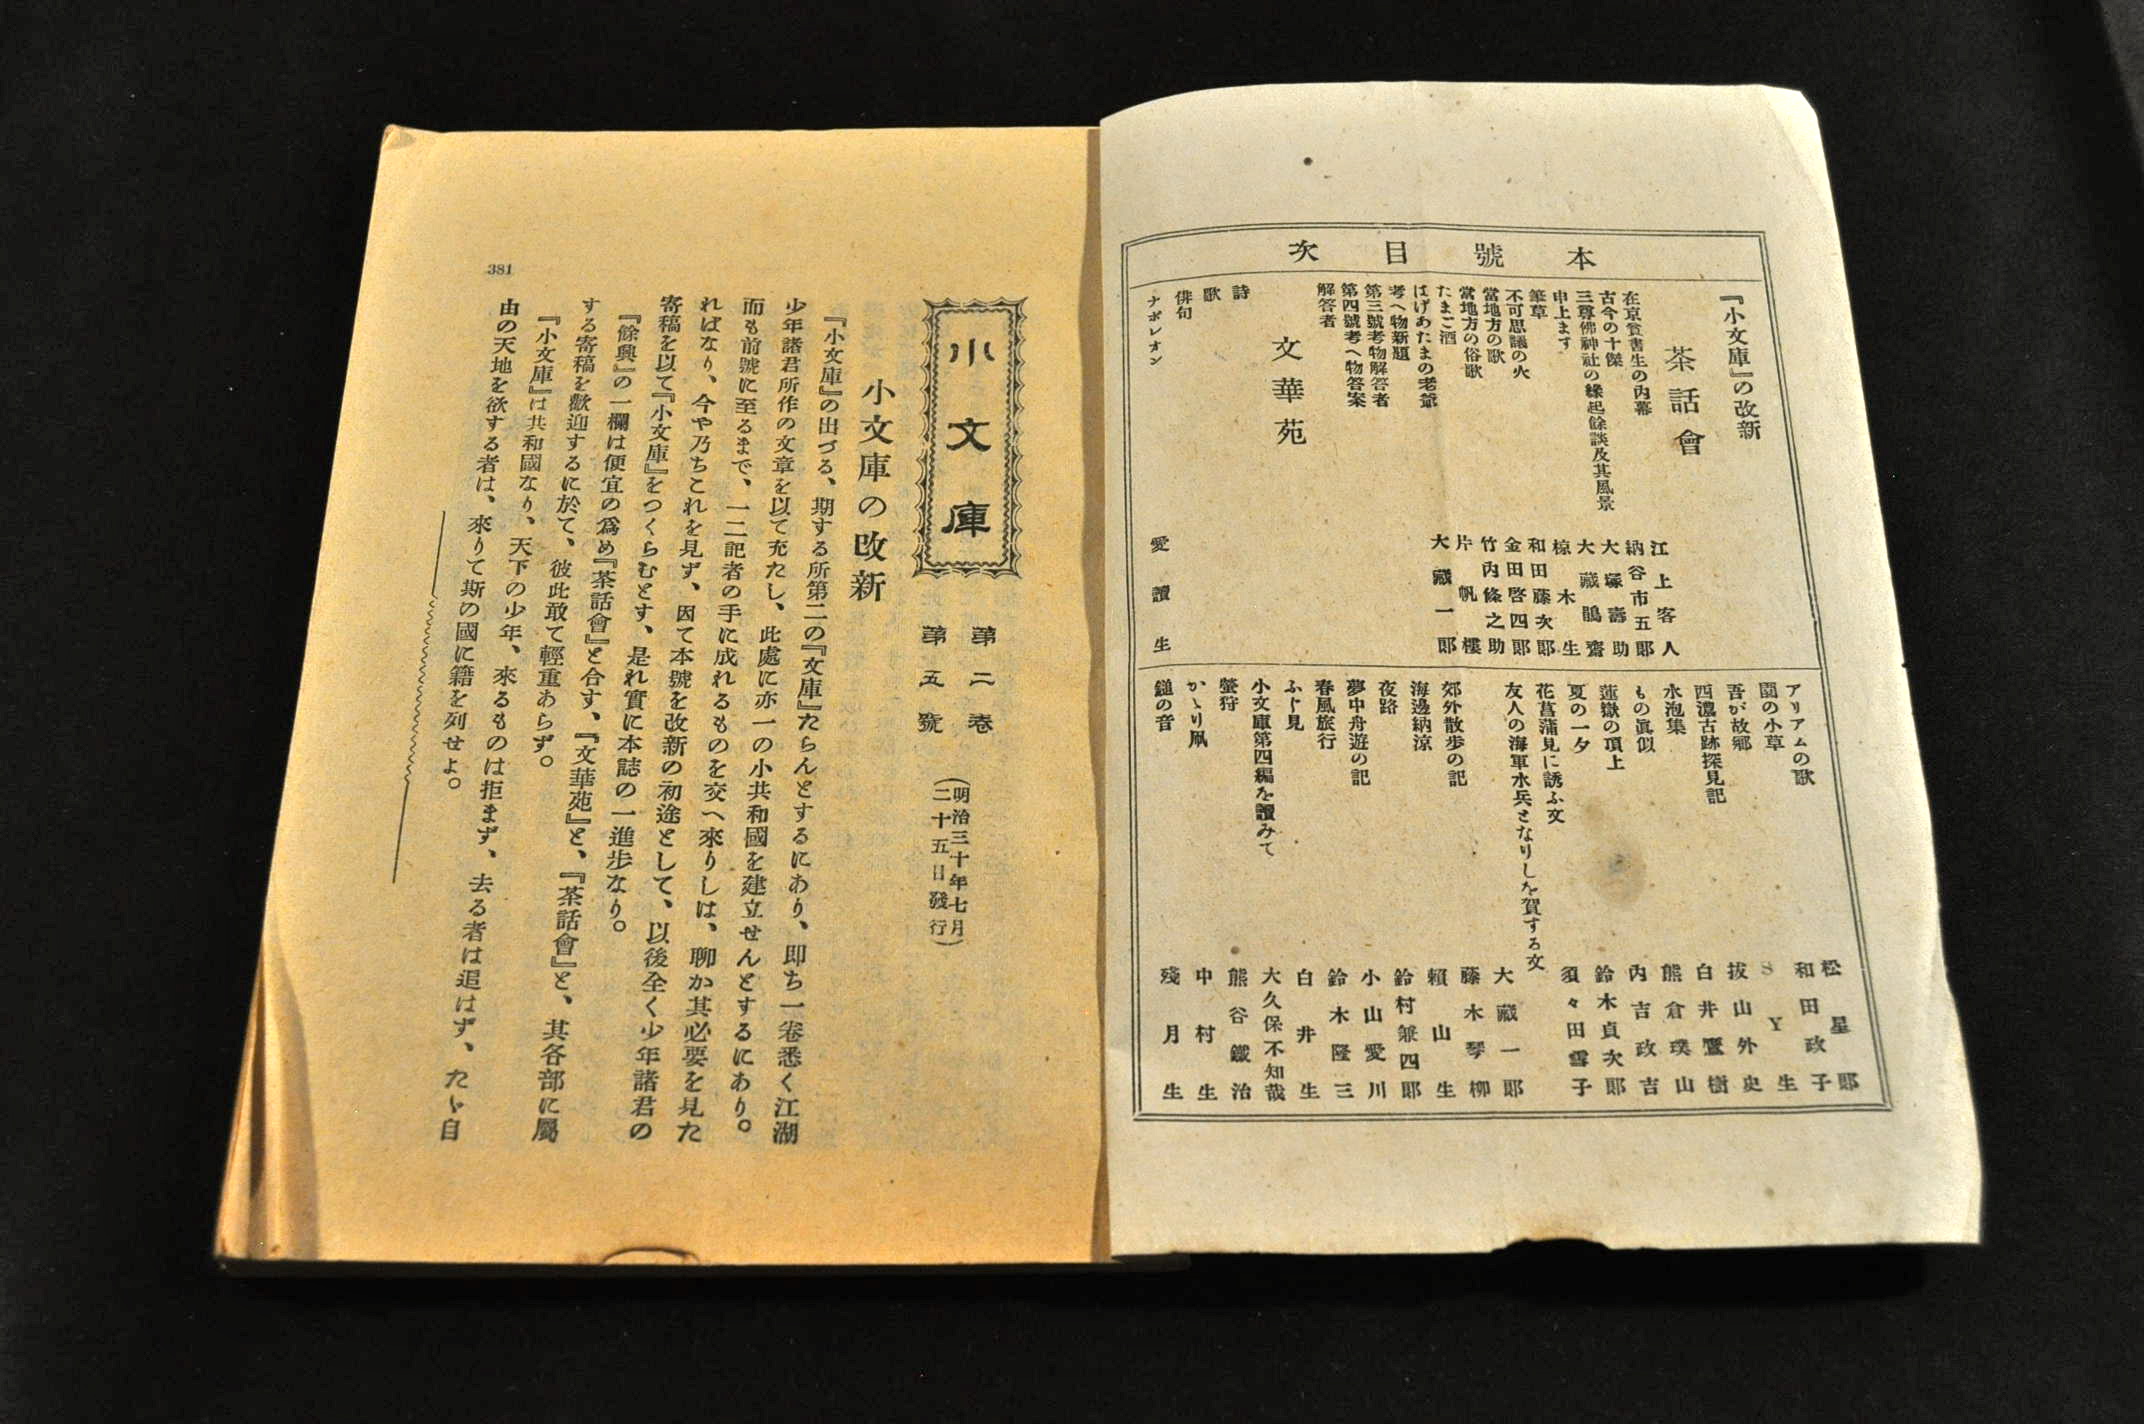 本號目次
『小文庫』の改新
茶話會
在京貧書生の内幕
江上客人
古今の十傑
納谷市五郎
三尊佛神社の緣起餘談及其風景
大塚壽助
申上ます
大藏鵑齋
筆草
椋木生
不可思議の火
和田藤次郎
當地方の歌
金田啓四郎
當地方の俗歌
竹内條之助
たまご酒
片帆樓
はげあたまの老爺
大藏一郎
考へ物新題
第三號考物解答者
第四號考へ物答案
解答者
文華苑
詩
歌
俳句
ナポレオン
愛讀生
アリアムの歌
松星郎
閨の小草
和田政子
吾が故鄕
SY生
西濃古跡探見記
拔山外史
水泡集
白井鷺樹
もの眞似
熊倉璞山
蓮嶽の頂上
内吉政吉
夏の一夕
鈴木貞次郎
花菖蒲見に誘ふ文
須々田雪子
友人の海軍水兵となりしを賀する文
大藏一郎
郊外散步の記
藤木琴柳
海邊納涼
賴山生
夜路
鈴村兼四郎
夢中舟遊の記
小山愛川
春風旅行
鈴木隆三
ふじ見
白井生
小文庫第四編を讀みて
大久保不知哉
螢狩
熊谷鐵治
かゝり凧
中村生
鎚の音
殘月生
小文庫
第二卷
第五號
(明治三十年七月
二十五日發行)
小文庫の改新
『小文庫』の出づる、期する所第二の『文庫』たらんとするにあり、即ち一卷悉く江湖
少年諸君所作の文章を以て充たし、此處に亦一の小共和國を建立せんとするにあり。
而も前號に至るまで、一二記者の手に成れるものを交へ來りしは、聊か其必要を見た
ればなり、今や乃ちこれを見ず、因て本號を改新の初途として、以後全く少年諸君の
寄稿を以て『小文庫』をつくらむとす、是れ實に本誌の一進步なり。
『餘興』の一欄は便宜の爲め『茶話會』と合す、『文華苑』と、『茶話會』と、其各部に屬
する寄稿を歡迎するに於て、彼此敢て輕重あらず。
『小文庫』は共和國なり、天下の少年、來るものは拒まず、去る者は追はず、たゞ自
由の天地を欲する者は、來りて斯の國に籍を列せよ。
381